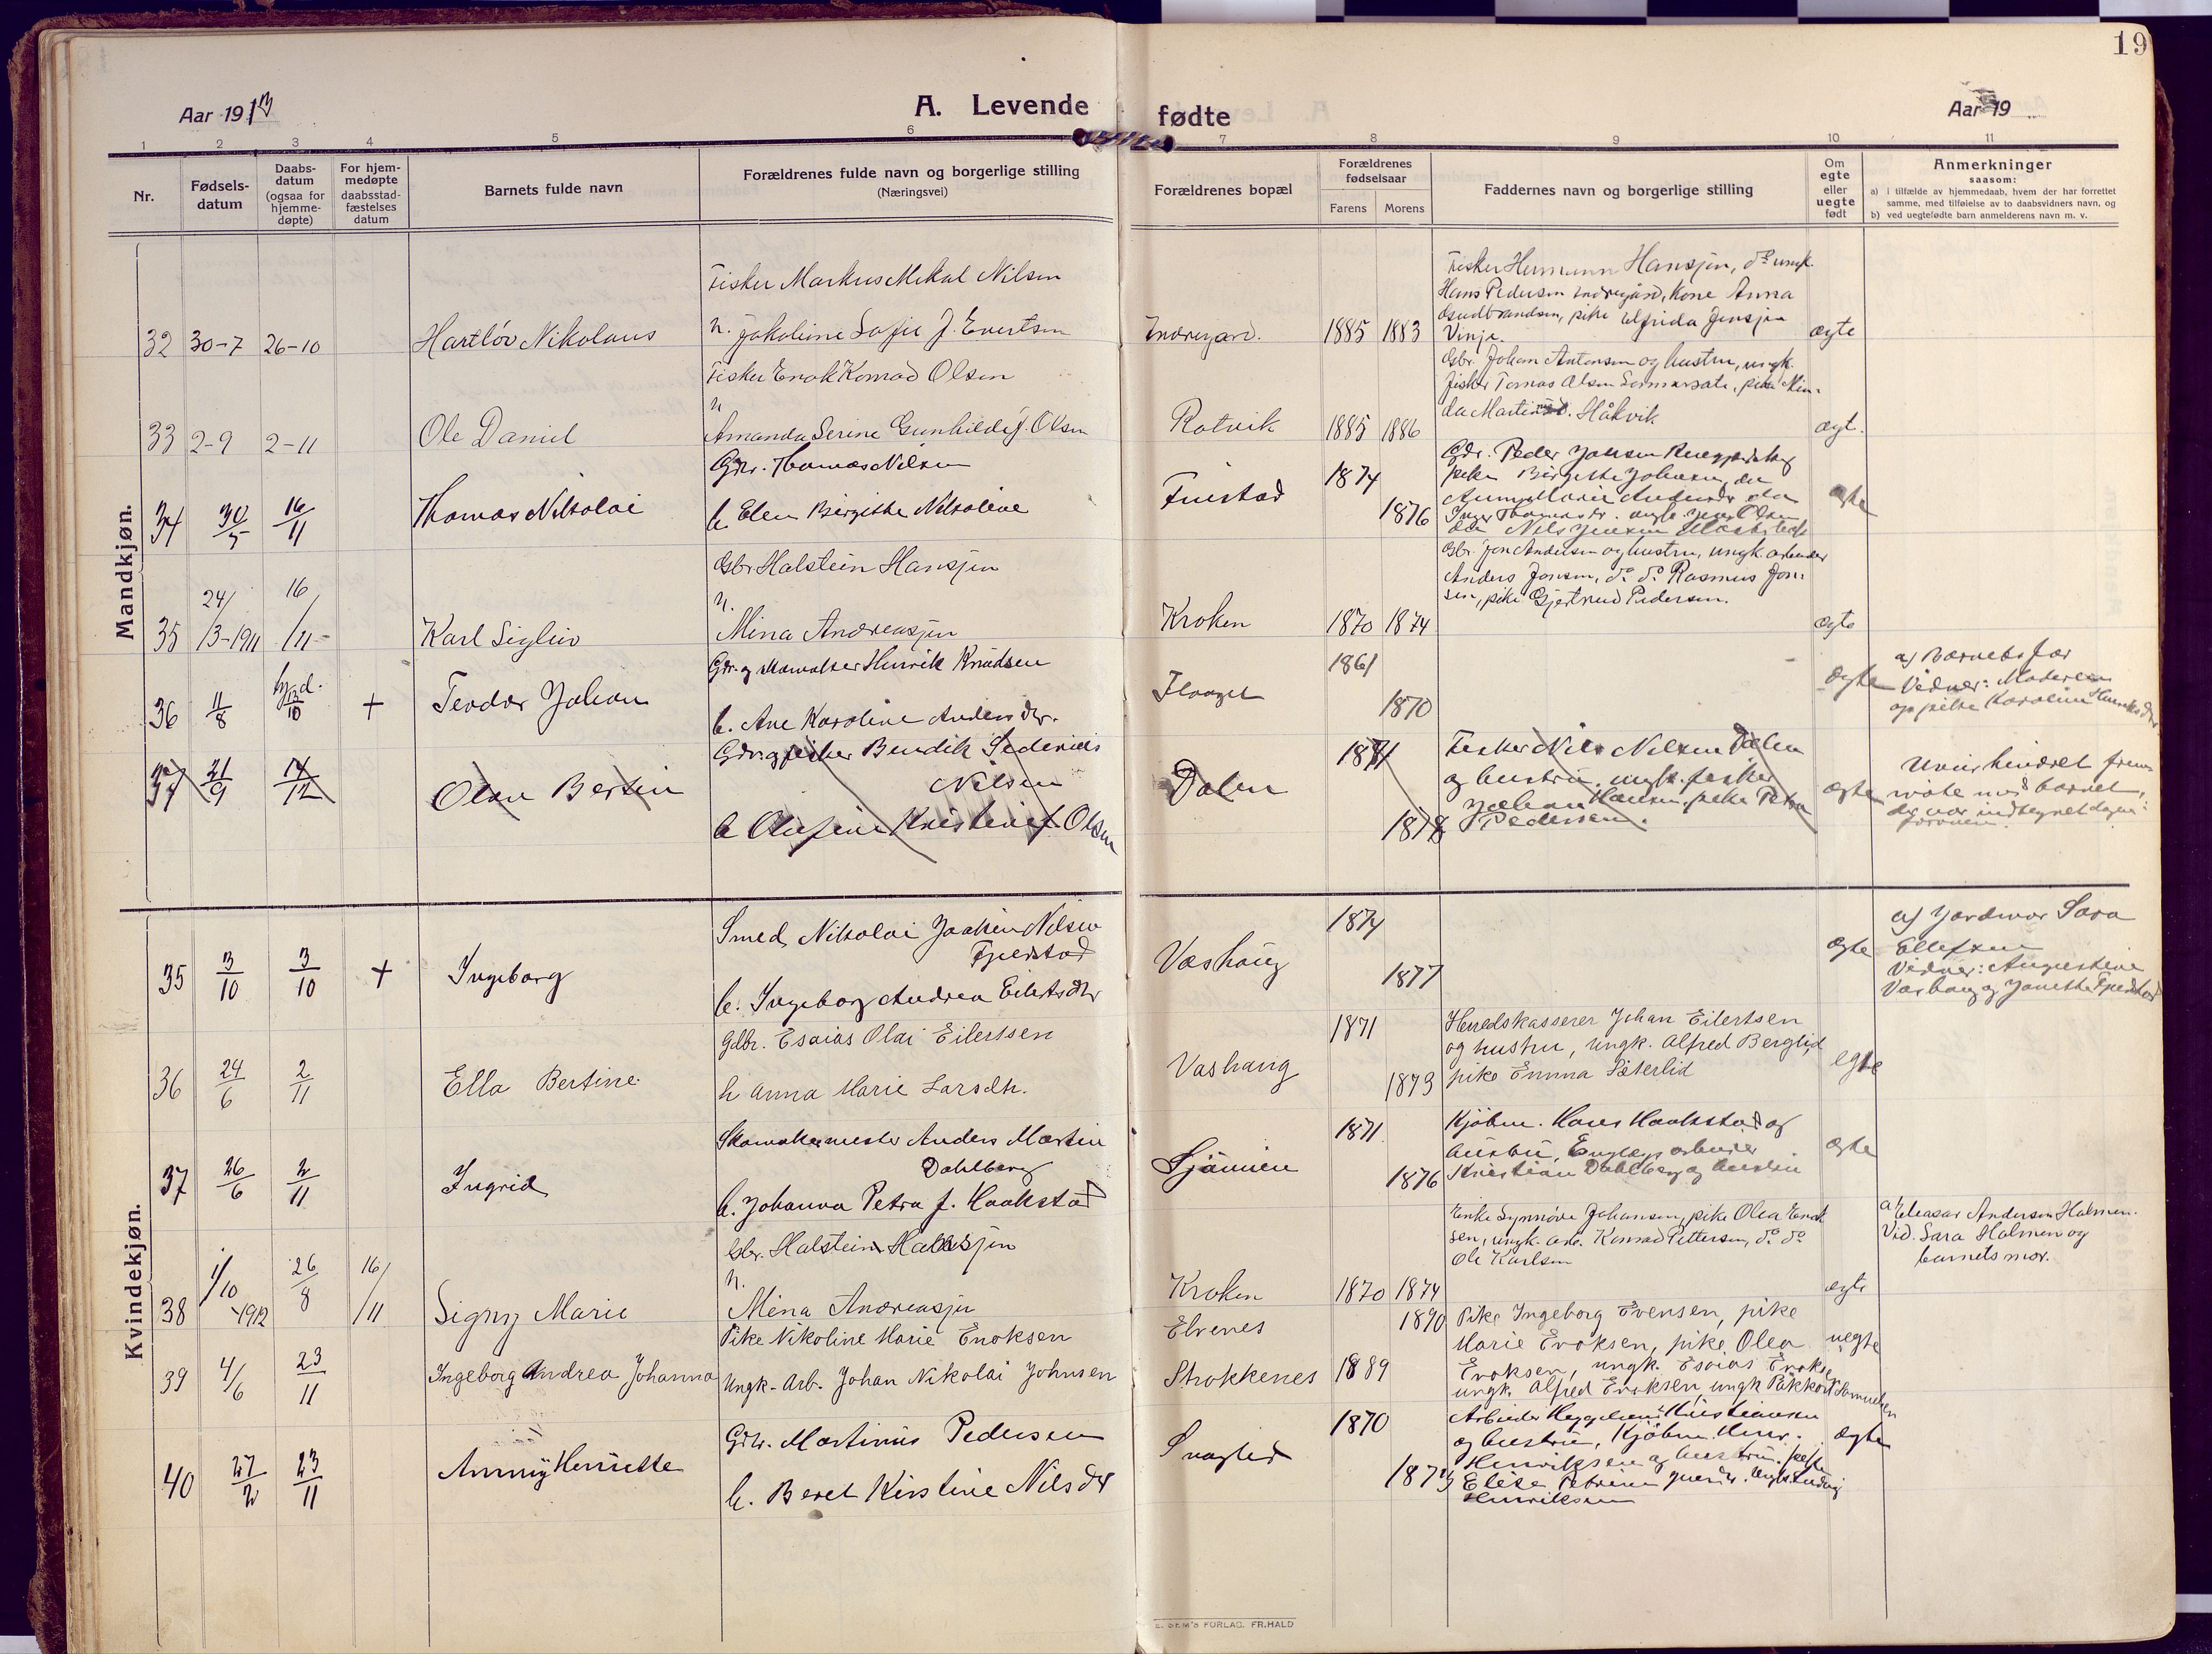 19
Aar 1913
A. Levende fødte
Aar 19
1 2 3 4 5 6 7 8 9 10 11
Nr.
Fødsels-datum
Daabs-datum (ogsaa for hjemme-døpte)
For hjem-medøpte daabsstad-fæstelses datum
Barnets fulde navn
Forældrenes fulde navn og borgerlige stilling (Næringsvei)
Forældrenes bopæl
Forældrenes fødselsaar
Farens Morens
Faddernes navn og borgerlige stilling
Om egte eller uegte født
Anmerkninger
saasom:
a) i tilfælde av hjemmedaab, hvem der har forrettet
samme, med tilføielse av to daabsvidners navn, og
b) ved uegtefødte barn anmelderens navn m. v.
Mandkjøn.
Fisker Markus Mikal Nilsen
32 30-7 26-10 Hartløv Nikolaus
h. Jakoline Sofie J. Evertsen
Indregård. 1885 1883
Fisker Hermann Hansjen, do ungk.
Hans Pedersen Indregård, Kone Anna
Gudbrandsen, pike Elfrida Jensjen
Vinje.
ægte
Fisker Enok Konrad Olsen
h
33 2-9 2-11 Ole Daniel
Amanda Serine Gunhilde J. Olsen
Rotvik 1885 1886
Gbr. Johan Antonsen og hustru, ungk.
fisker Tomas Olsen Sommersæte, pike Min-
da Martins. Håkvik
ægt.
Gdr. Thomas Nilsen
34 30/5 16/11 Thomas Nikolai
h Elen Birgitte Nikoline
1874
1876
Gdr. Peder Jonsen
pike Birgitte Johnsen, do
Anne Marie Andersdr do
ægte
Gbr Halstein Hansjen
h.
35 24/3-1911 16/11 Karl Sigleiv
Mina Andreasjen
Kroken 1870 1874
Gbr. Jon Andersen og hustru, ungk arbeider
Anders Jonsen, do do Rasmus Jon-
sen, pike Gjertrud Pedersen.
ægte
Gdr. og Henrik Knudsen
36 11/8 hjd. 12/10 + Teodor Johan
h. Ane Karoline Andersdr.
1861
1870
ægte
a) Barnets far
Vidner: Moderen
og pike Karoline Henriksdr
Gdr. og fisker Bendik Sedenius
Nilsen
37 21/9 14/12 Olav Bertin
h Olufine Kristine f. Olsen
Dalen 1871
1878
Fisker Nils Nilsen Dalen
og hustru, ungk. fisker
Johan Hansen, pike Petra
Pedersen.
ægte
møte med barnet,
Kvindekjøn.
Smed Nikolai Joakim Nilsen
Fjeldstad
35 3/10 3/10 + Ingeborg
h. Ingeborg Andrea Eilertsdtr
Vashaug 1874
1877
ægte
a) Jordmor Sara
Ellefsen
Vidner: Augustine
Vashaug og Janetta Fjeldstad
Gdbr. Esaias Olai Eilertsen
36 24/6 2/11 Ella Bertine
h Anna Marie Larsdtr.
Vashaug 1871
1873
Herredskasserer Johan Eilertsen
og hustru, ungk. Alfred Berglid,
pike Emma Sæterlid
egte
Skomakermester Anders Martin
Dahlberg
37 26/6 2/11 Ingrid
h. Johanna Petra f. Haakstad
1871
1876
Kjøbm. Hans Haakstad og
hustru, arbeider
Kristian Dahlberg og hustru
ægte
Gbr. Halstein Hansjen
h.
38 1/10 1912 26/8 16/11 Signy Marie
Mina Andreasjen
Kroken 1870 1874
Enke Synnøve Johansen, pike Olea Enok
sen, ungk. arb. Konrad Pettersen, do do
Ole Karlsen
egte
a) Eleasar Andersen Holmen.
Vid. Sara Holmen og
barnets mor.
Pike Nikoline Marie Enoksen
39 4/6 23/11 Ingeborg Andrea Johanna
Ungk. Arb. Johan Nikolai Johnsen
Elvenes 1890
Strokkenes 1889
Pike Ingeborg Evensen, pike
Marie Enoksen, pike Olea
Enoksen, ungk. Esaias Enoksen
ungk. Alfred Enoksen, ungk Samuelsen
uegte
Gdbr. Martinus Pedersen
40 27/2 23/11 Anny Henriette
h. Beret Kirstine Nilsdtr
1870
Arbeider Kristiansen
og hustru, Kjøbm.
Henriksen og hustru, pike
Elise Petrine Ungk. Ludvig
Henriksen
ægte
E. SEM'S FORLAG. FR.HALD